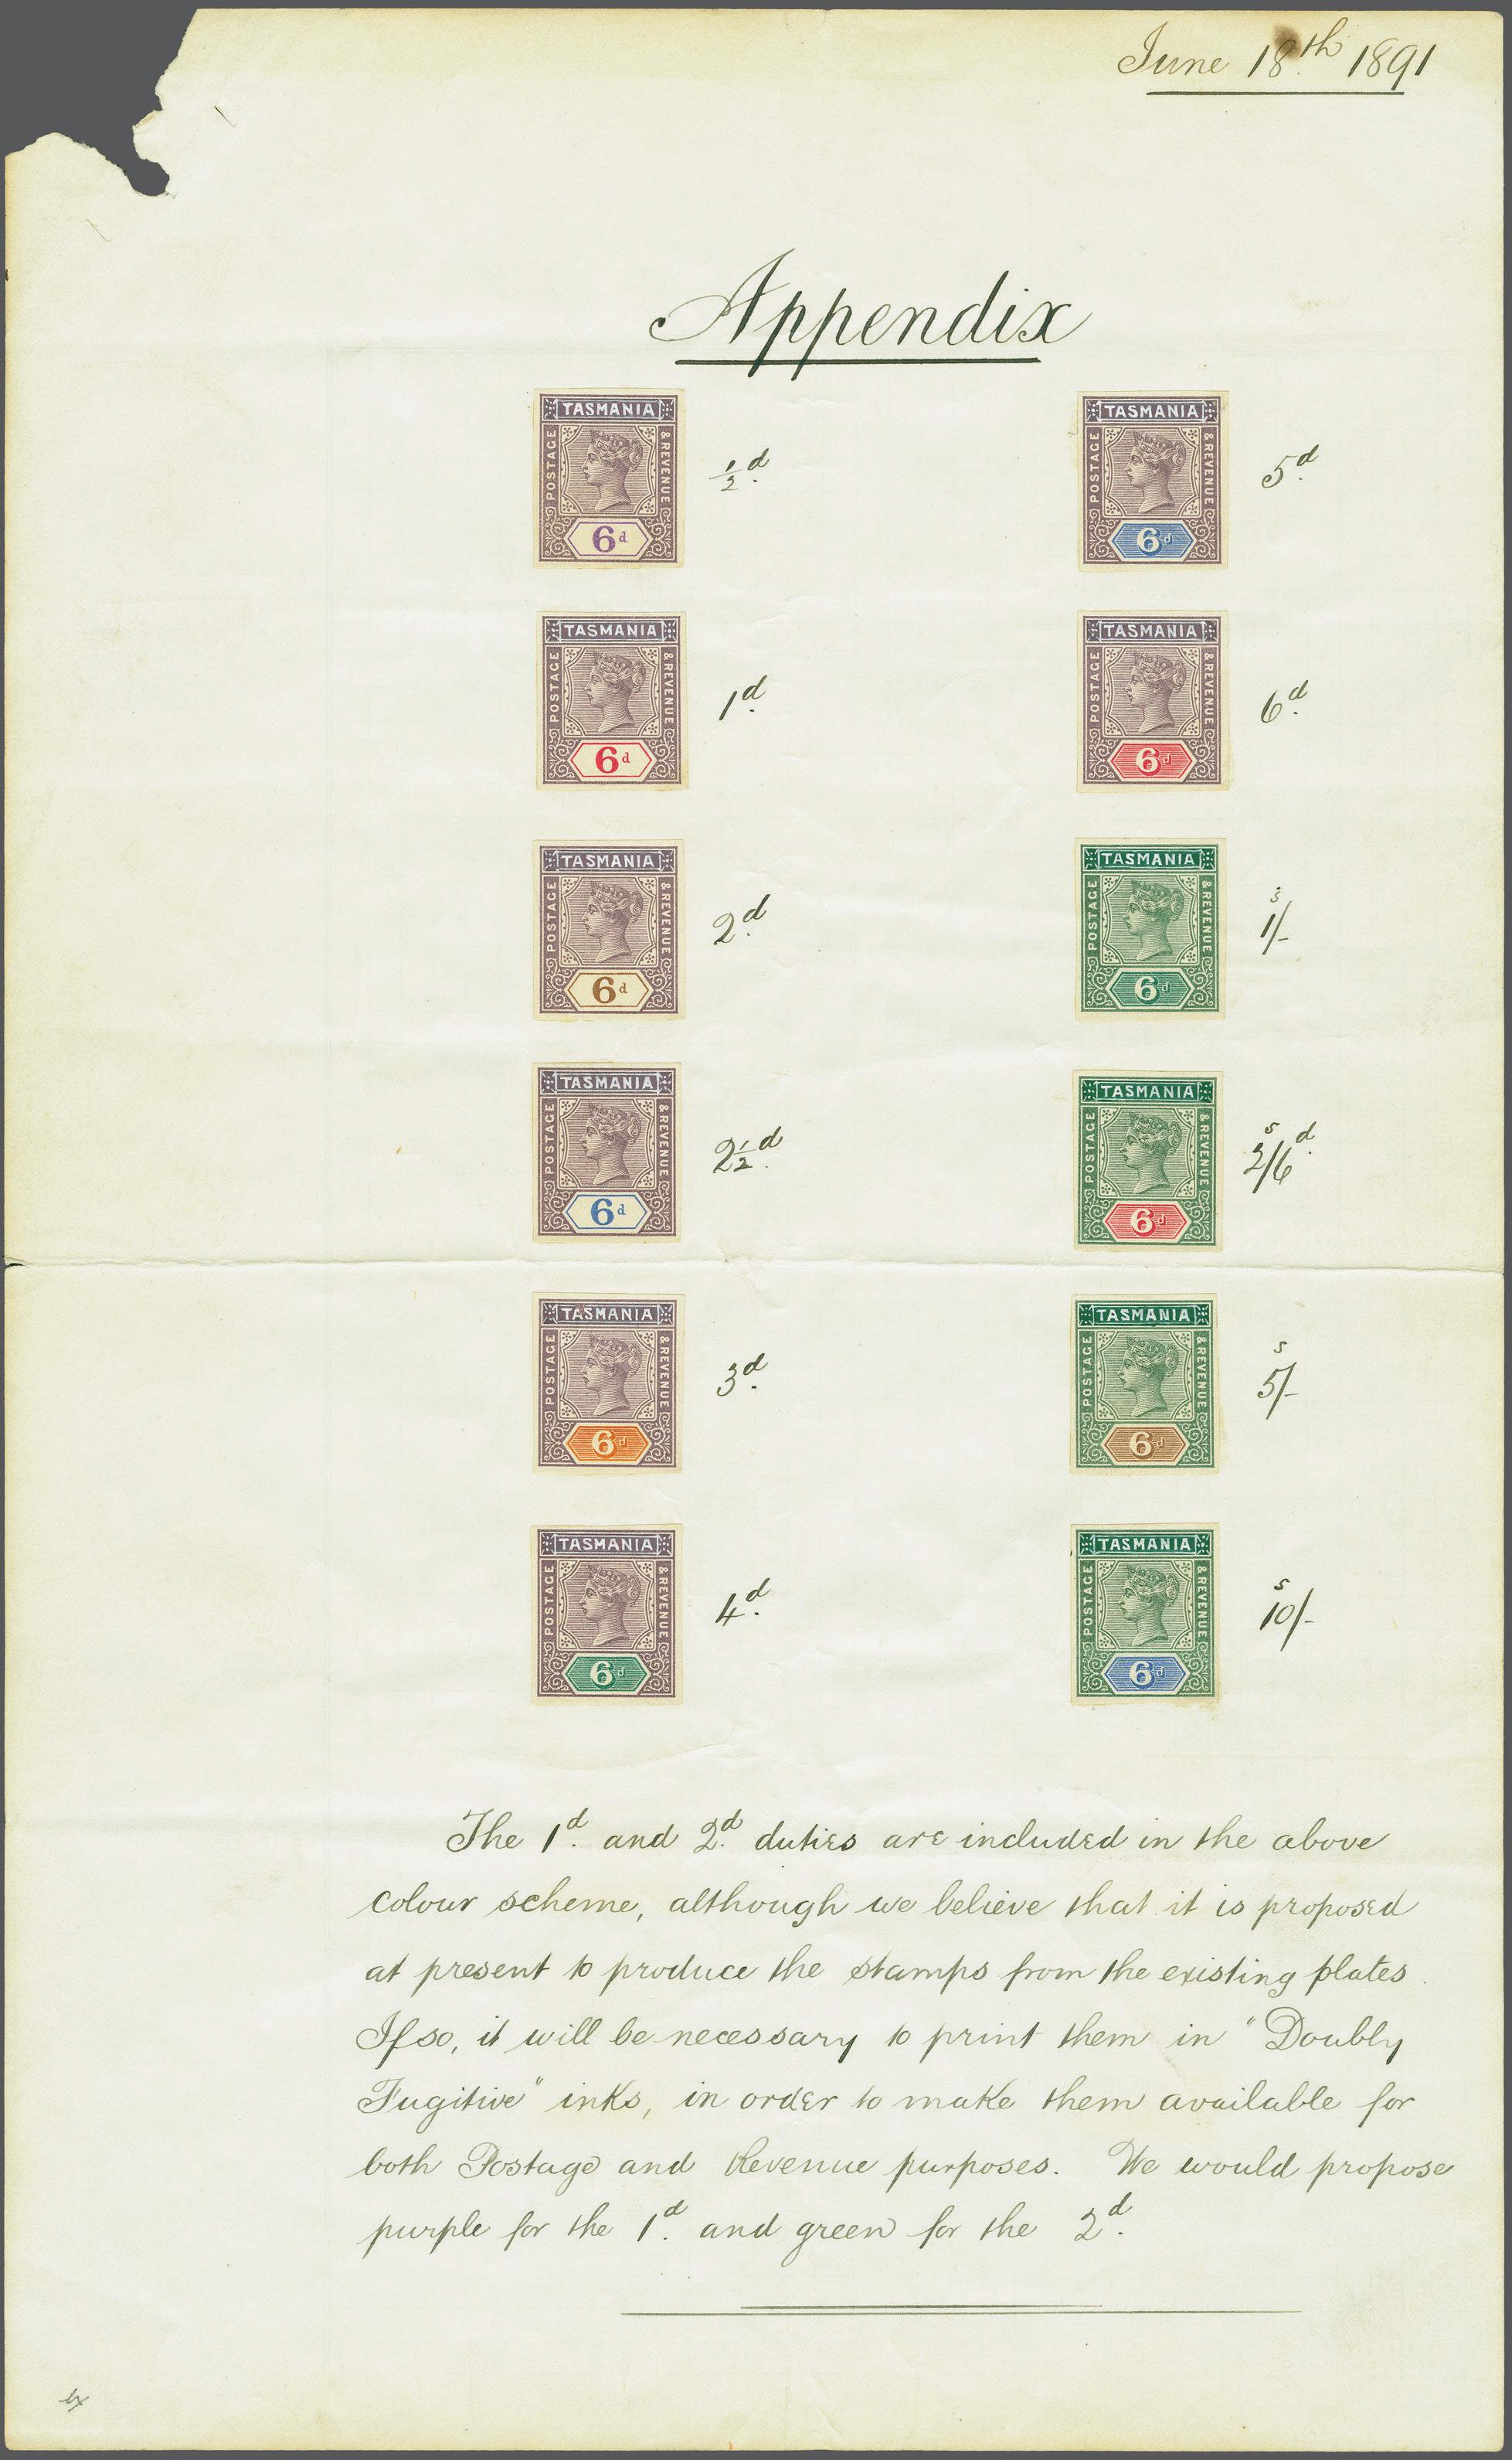 June 18th 1891
Appendix
TASMANIA
POSTAGE
& REVENUE
6d
½d
TASMANIA
POSTAGE
& REVENUE
6d
5d
TASMANIA
POSTAGE
& REVENUE
6d
1d
TASMANIA
POSTAGE
& REVENUE
6d
6d
TASMANIA
POSTAGE
& REVENUE
6d
2d
TASMANIA
POSTAGE
& REVENUE
6d
s
1/-
TASMANIA
POSTAGE
& REVENUE
6d
2½d
TASMANIA
POSTAGE
& REVENUE
6d
s d
2/6
TASMANIA
POSTAGE
& REVENUE
6d
3d
TASMANIA
POSTAGE
& REVENUE
6d
s
5/-
TASMANIA
POSTAGE
& REVENUE
6d
4d
TASMANIA
POSTAGE
& REVENUE
6d
s
10/-
The 1d. and 2d. duties are included in the above
colour scheme, although we believe that it is proposed
at present to produce the stamps from the existing plates.
If so, it will be necessary to print them in "Doubly
Fugitive" inks, in order to make them available for
both Postage and Revenue purposes. We would propose
purple for the 1d. and green for the 2d.